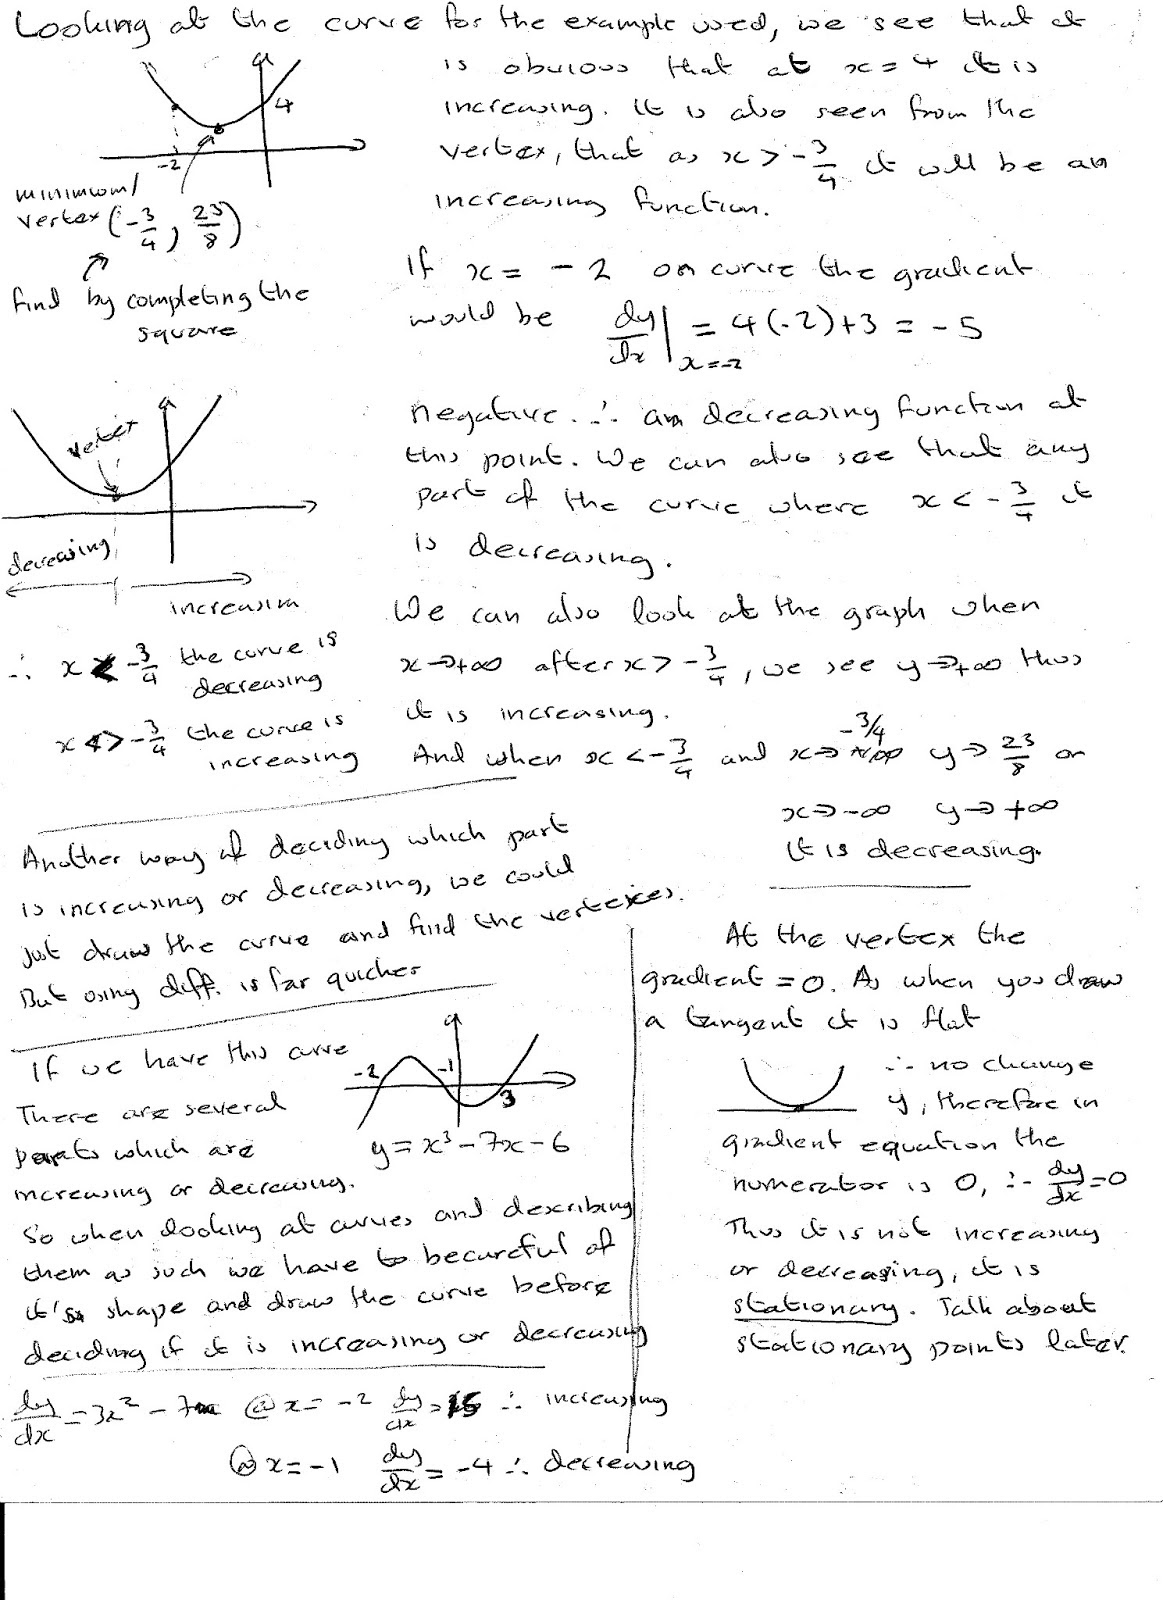 Looking at the curve for the example used, we see that it
is obvious that at x = 4 it is
increasing. It is also seen from the
vertex, that as x > -3/4 it will be an
increasing function.
4
-2
minimum/
vertex (-3/4, 23/8)
find by completing the
square
If x = -2 on curve the gradient
would be dy/dx | x=-2 = 4(-2)+3 = -5
negative. ∴ an decreasing function at
this point. We can also see that any
part of the curve where x < -3/4 it
is decreasing.
vertex
decreasing
increasing
∴ x < -3/4 the curve is
decreasing
x > -3/4 the curve is
increasing
We can also look at the graph when
x → +∞ after x > -3/4, we see y → +∞ thus
it is increasing.
And when x < -3/4 and x → -3/4 y → 23/8 or
x → -∞ y → +∞
it is decreasing.
Another way of deciding which part
is increasing or decreasing, we could
just draw the curve and find the vertexes.
But using diff. is far quicker
If we have this curve
-2 -1 3
y = x³ - 7x - 6
There are several
parts which are
increasing or decreasing.
So when looking at curves and describing
them as such we have to be careful of
it's shape and draw the curve before
deciding if it is increasing or decreasing
dy/dx = 3x² - 7 @ x = -2 dy/dx = 5 ∴ increasing
@ x = -1 dy/dx = -4 ∴ decreasing
At the vertex the
gradient = 0. As when you draw
a tangent it is flat
∴ no change
y, therefore in
gradient equation the
numerator is 0, ∴ dy/dx = 0
Thus it is not increasing
or decreasing, it is
stationary. Talk about
stationary points later.